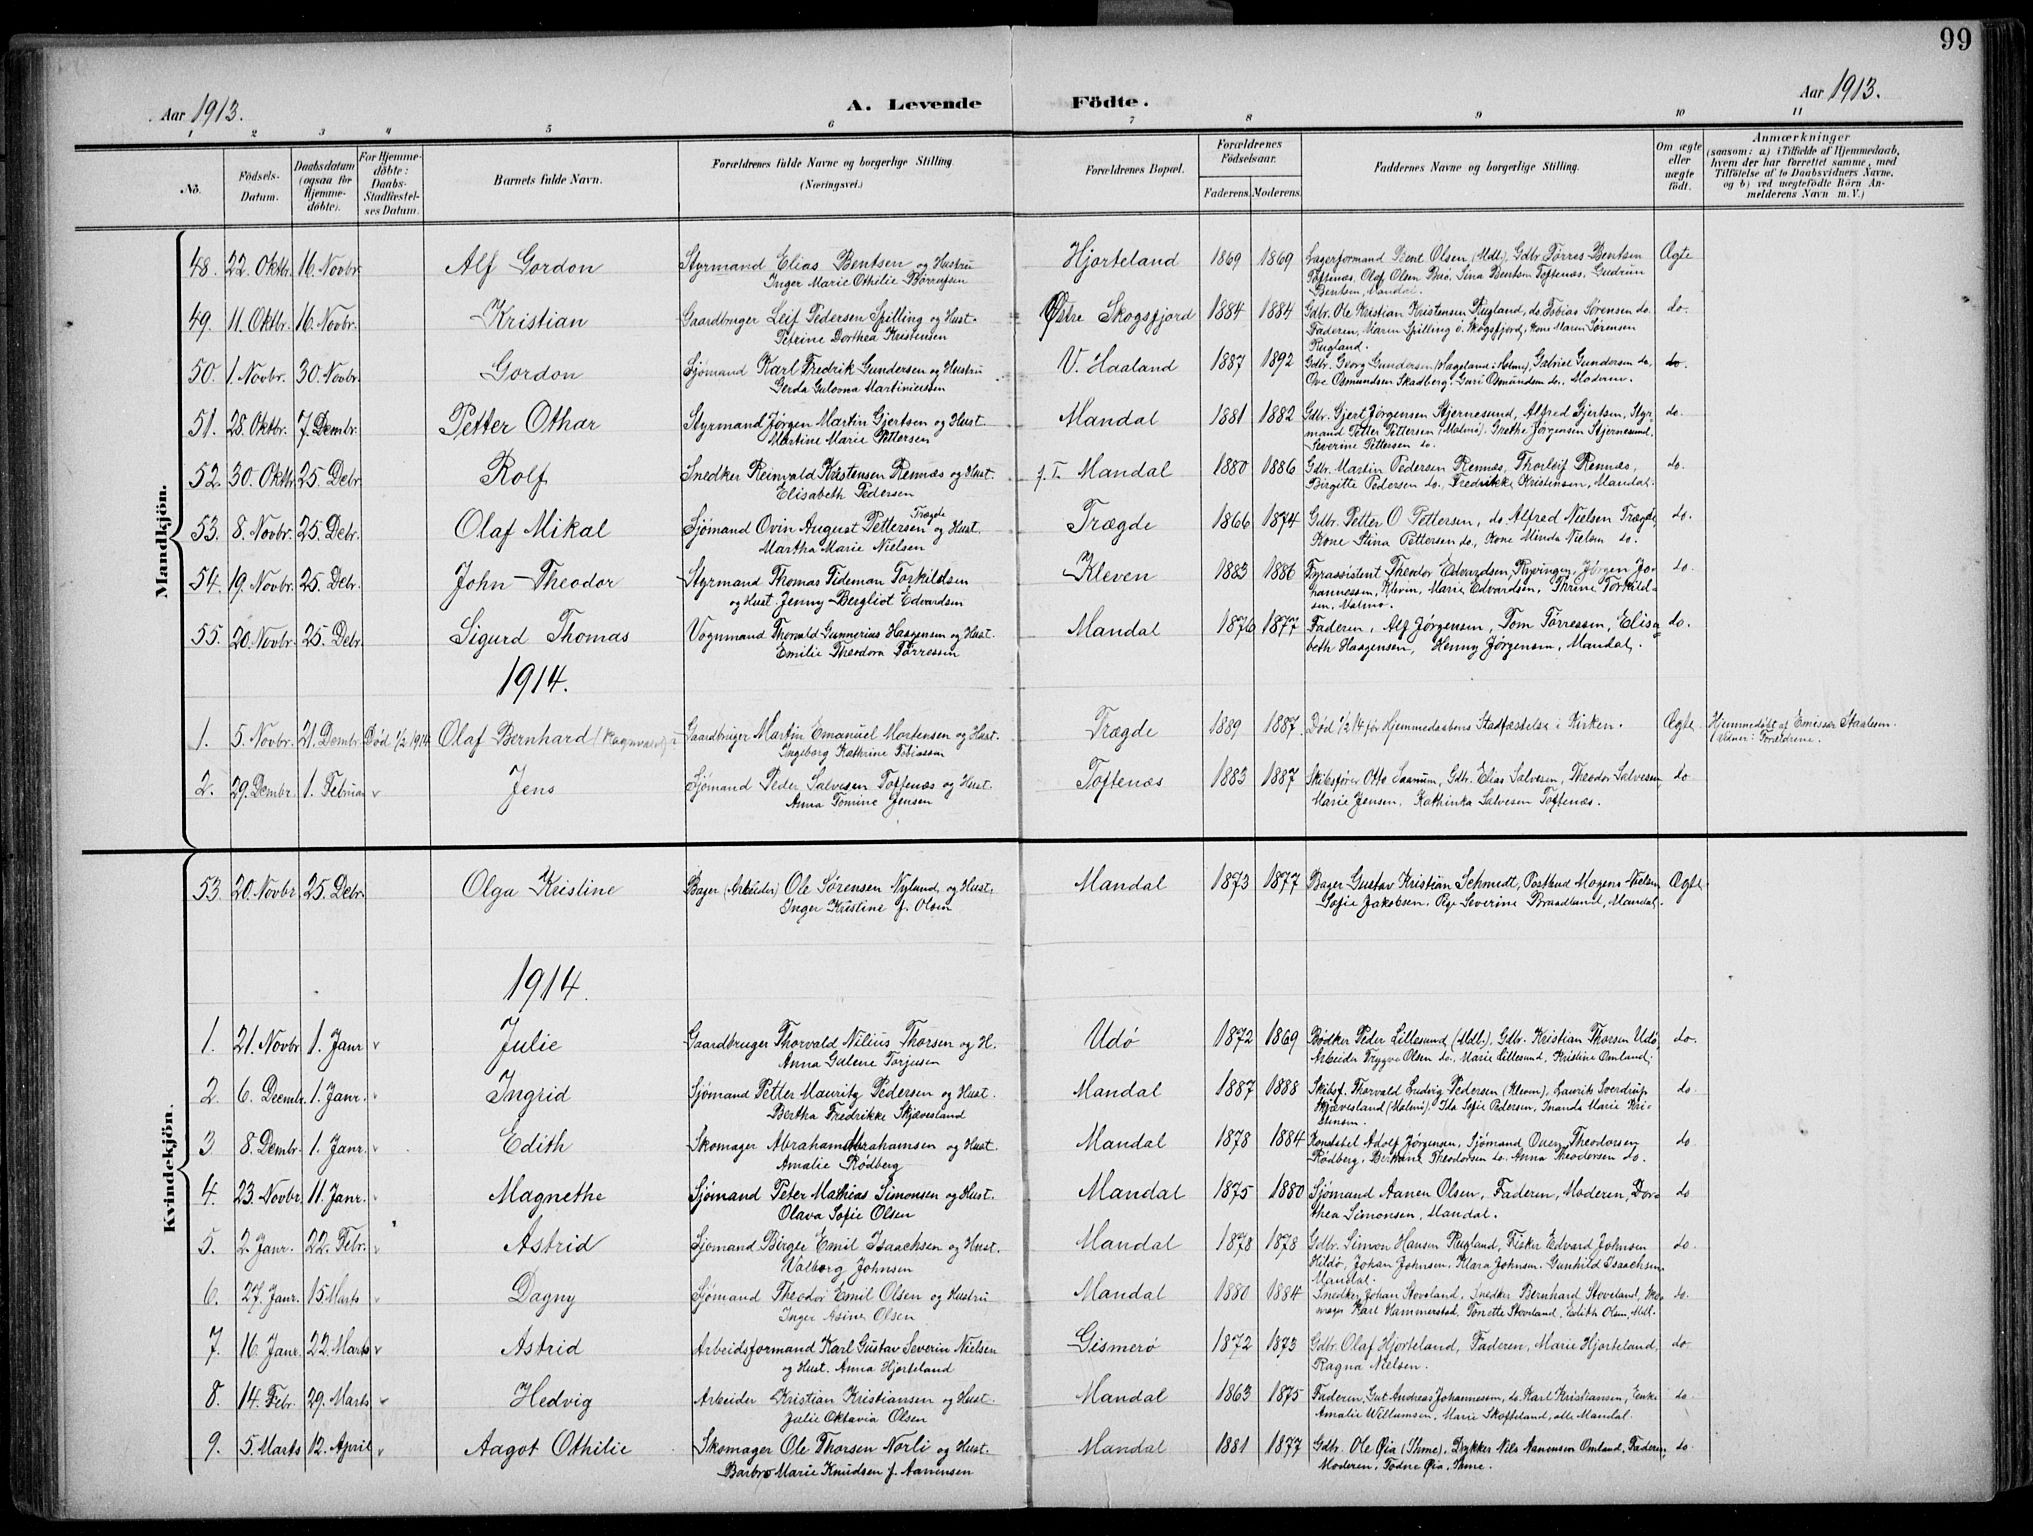 99
Aar 1913.
A. Levende Födte.
Aar 1913.
1 2 3 4 5 6 7 8 9 10 11
No. Födsels-Datum. Daabsdatum (ogsaa for Hjemme-döbte). For Hjemme-döbte: Daabs-Stadfæstel-ses Datum. Barnets fulde Navn. Forældrenes fulde Navne og borgerlige Stilling. (Næringsvei.) Forældrenes Bopæl. Forældrenes Födselsaar. Faderens. Moderens. Faddernes Navne og borgerlige Stilling. Om ægte eller uægte födt. Anmærkninger (saasom: a) i Tilfælde af Hjemmedaab, hvem der har forrettet samme, med Tilföielse af to Daabsvidners Navne, og b) ved uægtefödte Börn An-melderens Navn m. V.)
Mandkjön.
48. 22. Oktbr. 16. Novbr. Alf Gordon Styrmand Elias Bentsen og Hustru Hjorteland 1869 1869 Lagerformand Bent Olsen (Mdl). Gdbr. Tørres Bentsen Ægte
Inger Marie Othilie Børresen Toftenæs, Olaf Olsen Busø, Sina Bentsen Toftenæs, Gudrun
Bentsen, Mandal.
49. 11. Oktbr. 16. Novbr. Kristian Gaardbruger Leif Pedersen Spilling og Hust. Østre Skogsfjord 1884 1884 Gdbr. Ole Kristian Kristensen Rugland, do. Tobias Sørensen do. do.
Petrine Dorthea Kristensen Faderen, Maren Spilling ö. Skogsfjord, Kone Maren Sørensen
Rugland.
50. 1. Novbr. 30. Novbr. Gordon Sjømand Karl Fredrik Gundersen og Hustru V. Haaland 1887 1892 Gdbr. Georg Gundersen (Hageland i Holme), Gabriel Gundersen do, do.
Gerda Gulovna Martiniussen Ove Osmundsen Skadberg. Guri Osmundsen do., Moderen.
51. 28. Oktbr. 7. Dembr. Petter Othar Styrmand Jørgen Martin Gjertsen og Hust. Mandal 1881 1882 Gdbr. Gjert Jørgensen Stjernesund, Alfred Gjertsen, Styr- do.
Martine Marie Pettersen mand Petter Pettersen (Malmø). Grethe Jørgensen Stjernesund,
Severine Pettersen do.
52. 30. Oktbr. 25. Debr. Rolf Snedker Reinvald Kristensen Rennæs og Hust. p. T. Mandal 1880 1886 Gdbr. Martin Pedersen Rennæs, Thorleif Rennæs, do.
Elisabeth Pedersen Birgitte Pedersen do., Fredrikke Kristensen, Mandal.
53. 8. Novbr. 25. Debr. Olaf Mikal Sjømand Ovin August Pettersen Trægde og Hust. Trægde 1866 1874 Gdbr. Petter O Pettersen, do. Alfred Nielsen Trægde, do.
Martha Marie Nielsen Kone Stina Pettersen do., Kone Minda Nielsen do.
54. 19. Novbr. 25. Debr. John Theodor Styrmand Thomas Tideman Torkildsen Kleven 1883 1886 Fyrassistent Theodor Edvardsen, Ryvingen, Jørgen Jo- do.
og Hust. Jenny Bergliot Edvardsen hannessen, Kleven, Marie Edvardsen, Thrine Torkild-
sen, Malmø.
55. 20. Novbr. 25. Debr. Sigurd Thomas Vognmand Thorvald Gunnerius Haagensen og Hust. Mandal 1876 1877 Faderen, Alf Jørgensen, Tom Tørressen, Elisa- do.
Emilie Theodora Tørressen beth Haagensen, Henny Jørgensen, Mandal.
1914.
1. 5. Novbr. 21. Dembr. Død 1/2 1914 Olaf Bernhard Gaardbruger Martin Emanuel Mortensen og Hust. Trægde 1889 1887 Død 1/2 14 før Hjemmedaabens Stadfæstelse i Kirken. Ægte Hjemmedøbt af Emissær Staalesen.
Ingeborg Kathrine Tobiassen Vidner: Forældrene.
2. 29. Dembr. 1. Februar Jens Sjømand Peder Salvesen Toftenæs og Hust. Toftenæs 1883 1887 Skibsfører Otto Saanum, Gdbr. Elias Salvesen, Theodor Salvesen, do
Anna Tomine Jensen Marie Jensen, Kathinka Salvesen Toftenæs.
Kvindekjön.
53. 20. Novbr. 25. Debr. Olga Kristine Bager (Arbeider) Ole Sørensen Nyland, og Hust. Mandal 1873 1877 Bager Gustav Kristian Schmedt, Postbud Mogens Nielsen, Ægte.
Inger Kristine f. Olsen Sofie Jakobsen, Pige Severine Braadland, Mandal.
1914.
1. 21. Novbr. 1. Janr. Julie Gaardbruger Thorvald Nilius Thorsen og H. Udö 1872 1869 Bødker Peder Lillesund (Mdl.), Gdbr. Kristian Thorsen Udö, do.
Anna Gulene Torjusen Arbeider Trygve Olsen do. Marie Lillesund, Kristine Omland.
2. 6. Decmbr. 1. Janr. Ingrid Sjømand Petter Mauritz Pedersen og Hust. Mandal 1887 1888 Skibsf. Thorvald Ludvig Pedersen (Kleven), Laurits Sverdrup do.
Bertha Fredrikke Skjævesland Skjævesland (Malmö). Ida Sofie Pedersen, Inanda Marie Kri-
stensen.
3 8. Dembr. 1. Janr. Edith Skomager Abraham Abrahamsen og Hust. Mandal 1878 1884 Konstabel Adolf Jørgensen, Sjømand Owen Theodorsen do
Amalie Rødberg Rødberg, Berthine Theodorsen do. Anna Theodorsen do.
4. 23. Novbr. 11. Janr. Magnethe Sjømand Peter Mathias Simonsen og Hust. Mandal 1875 1880 Sjømand Aanen Olsen, Faderen, Moderen, Dor- do
Olava Sofie Olsen thea Simonsen, Mandal.
5. 2. Janr. 22. Febr. Astrid Sjømand Birger Emil Isaachsen og Hust. Mandal 1878 1878 Gdbr. Simon Hansen Rugland, Fisker Edvard Johnsen do.
Valborg Johnsen Hildö, Johan Johnsen, Klara Johnsen. Gunhild Isaachsen,
Mandal.
6. 27. Janr. 15. Marts Dagny Sjømand Theodor Emil Olsen og Hustru Mandal 1880 1884 Snedker Johan Stoveland, Snedker Bernhard Stoveland, Sko- do.
Inger Asine Olsen mager Karl Hammerstad, Tonette Stoveland, Edith Olsen, Mdl.
7. 16. Janr. 22. Marts Astrid Arbeidsformand Karl Gustav Severin Nielsen Gismerö 1872 1873 Gdbr. Olaf Hjorteland, Faderen, Marie Hjorteland, do.
og Hust. Anna Hjorteland Ragna Nielsen.
8. 14. Febr. 29. Marts Hedvig Arbeider Kristian Kristiansen og Hust. Mandal 1863 1875 Faderen, Gut Andreas Johannesen, do. Karl Kristiansen, Enke do.
Julie Oktavia Olsen Amalie Willumsen, Marie Skofteland, alle Mandal.
9. 5. Marts 12. April Aagot Othilie Skomager Ole Thorsen Norli og Hust. Mandal 1881 1877 Gdbr. Ole Øia (Ihme), Drykker Nils Aanensen Omland, Faderen, do.
Barbro Marie Knudsen f. Aanensen Moderen, Todne Øia, Ihme.